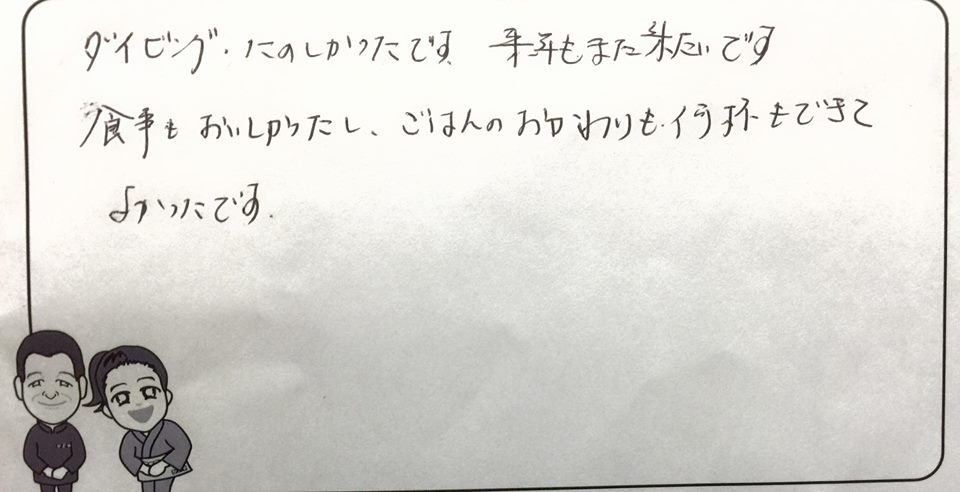 ダイビング、たのしかったです 来年もまた来たいです
食事もおいしかったし、ごはんのおかわりも何杯もできて
よかったです。